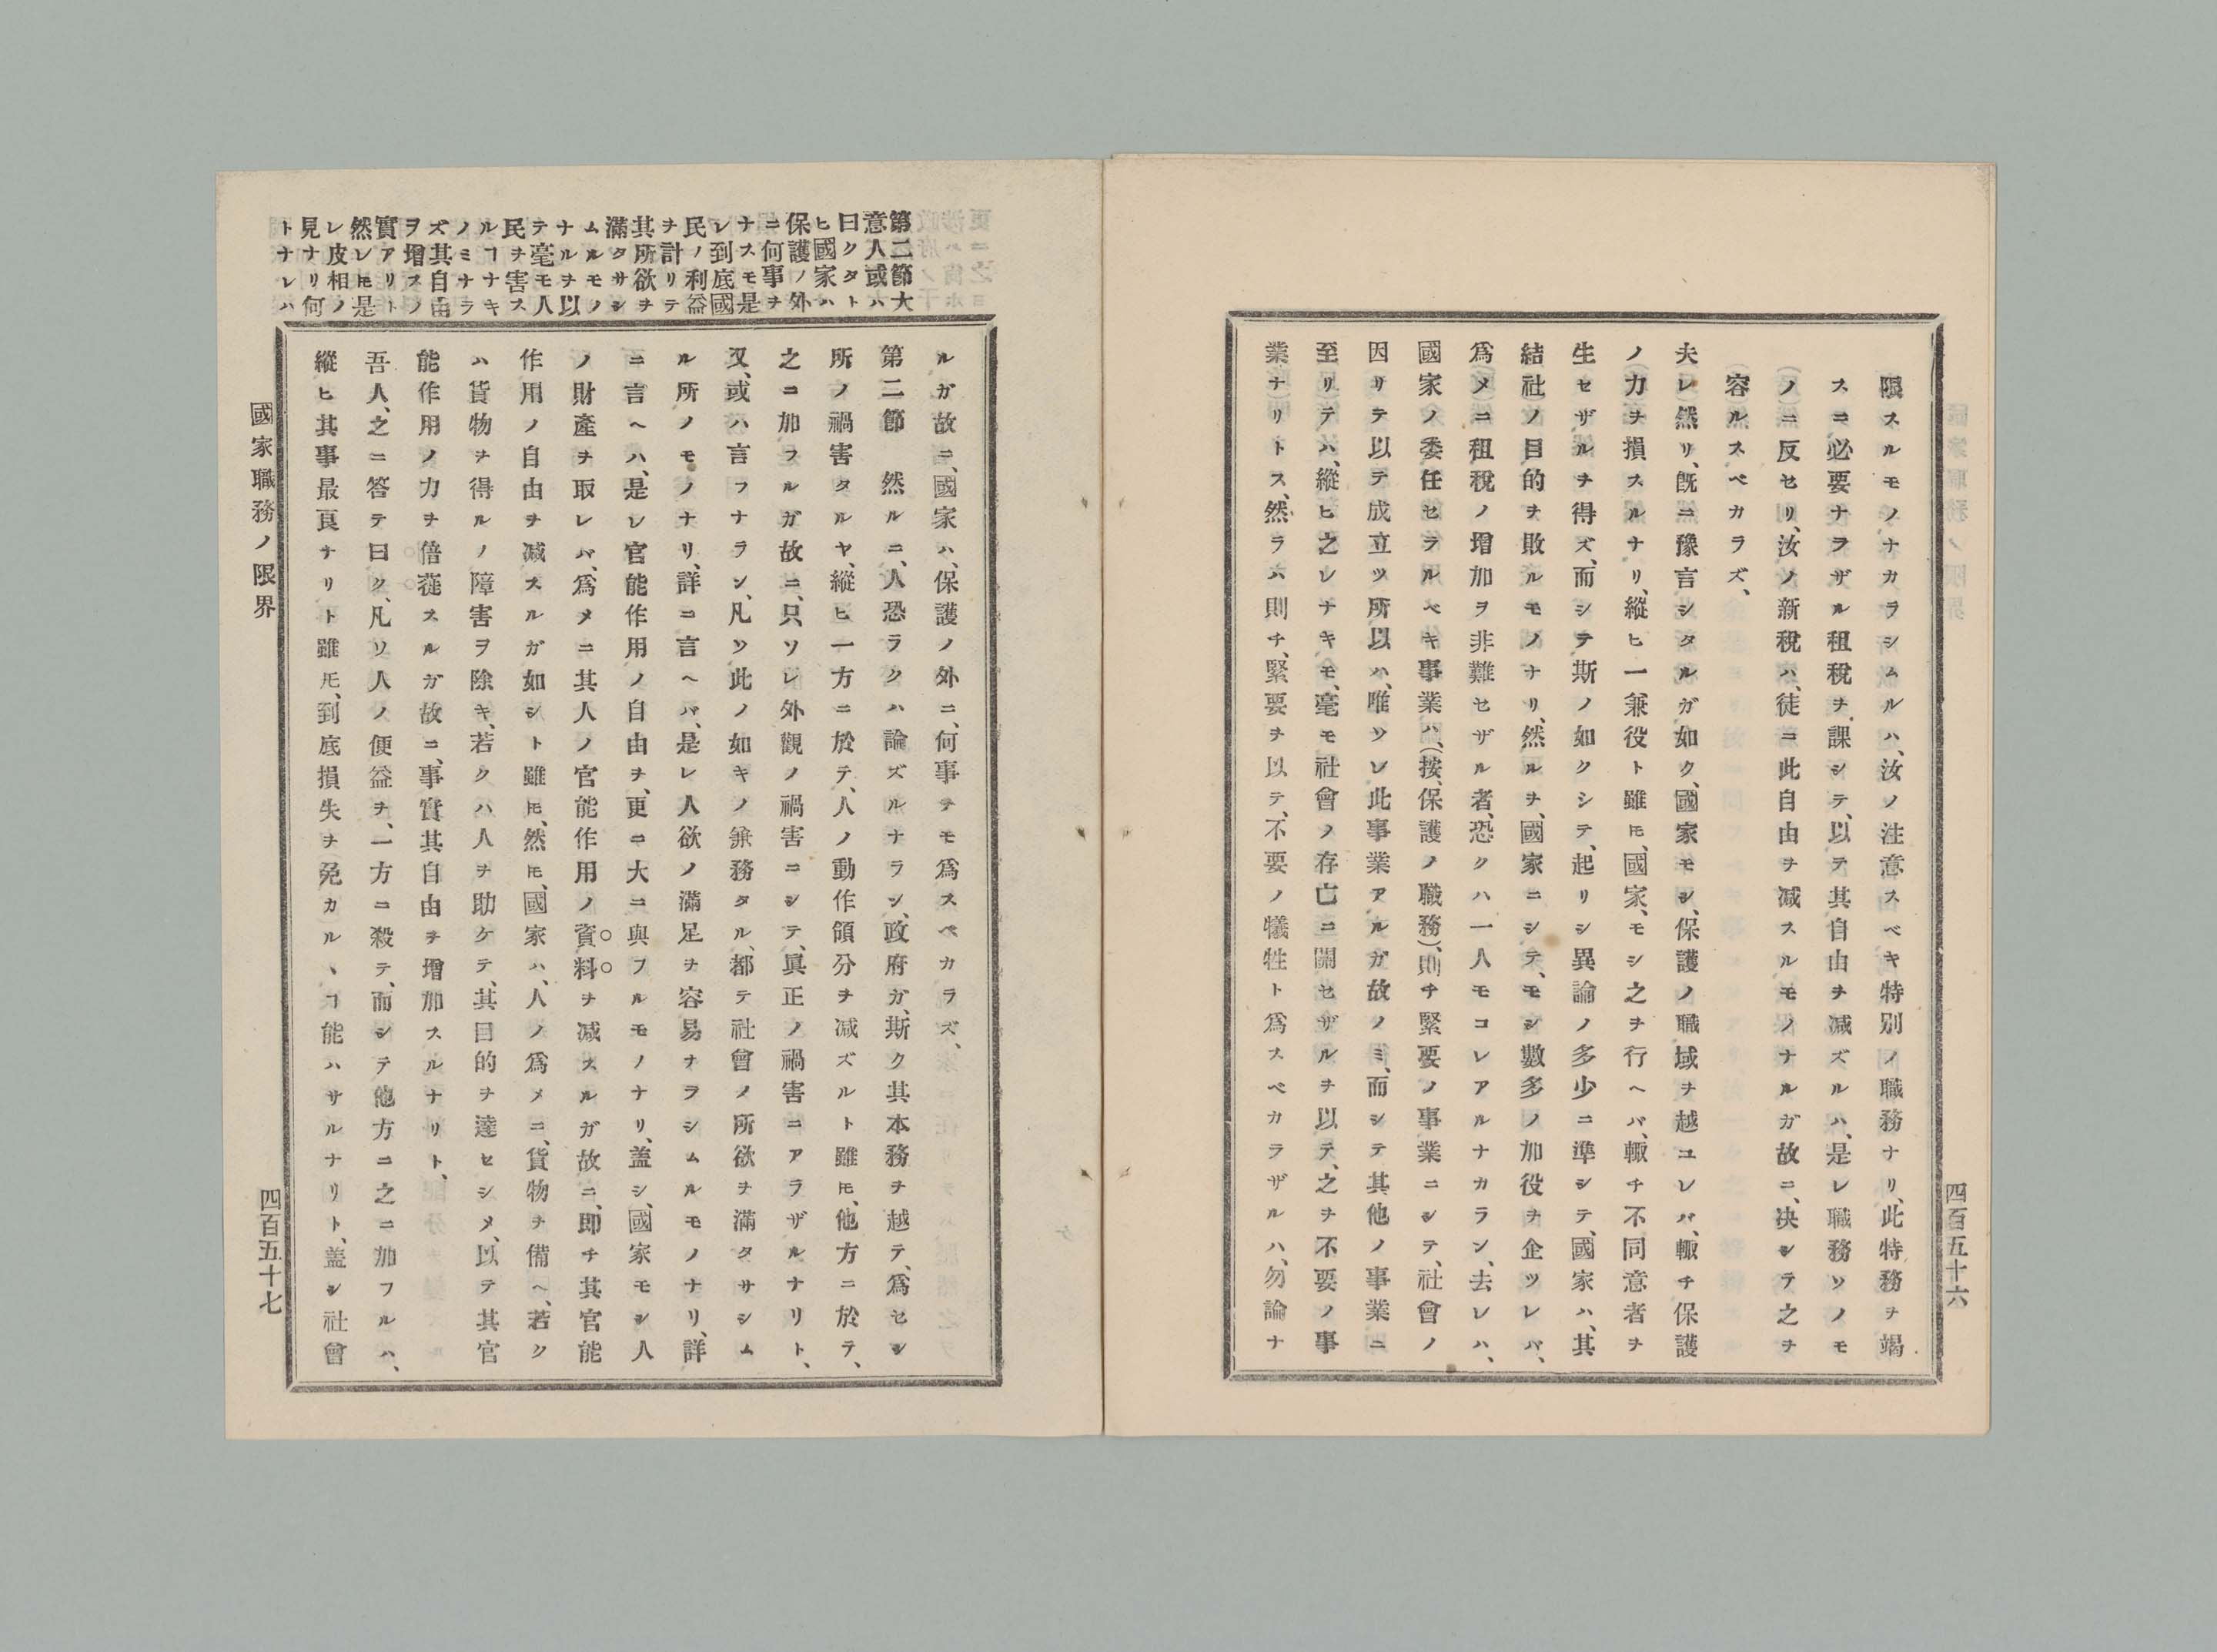 限スルモノナカラシムルハ、汝ノ注意スベキ特別ノ職務ナリ、此特務ヲ竭
スニ必要ナラザル租税ヲ、課シテ、以テ其自由ヲ減ズルハ、是レ職務ソノモ
ノニ反セリ、汝ノ新税ハ、徒ニ此自由ヲ減スルモノナルガ故ニ、决シテ之ヲ
容ルスベカラズ、
夫レ然リ、既ニ豫言シタルガ如ク、國家モシ、保護ノ職域ヲ越ユレバ、輙チ保護
ノ力ヲ損スルナリ、縱ヒ一兼役ト雖𪜈、國家、モシ之ヲ行ヘバ、輙チ不同意者ヲ
生セザルヲ得ズ、而シテ斯ノ如クシテ、起リシ異論ノ多少ニ準シテ、國家ハ、其
結社ノ目的ヲ敗ルモノナリ、然ルヲ、國家ニシテ、モシ數多ノ加役ヲ企ツレバ、
爲メニ租税ノ増加ヲ非難セザル者、恐クハ一人モコレアルナカラン、去レハ、
國家ノ委任セラルベキ事業ハ、(按、保護ノ職務)、則チ緊要ノ事業ニシテ、社會ノ
因リテ以テ成立ツ所以ハ、唯ソレ此事業アルガ故ノミ、而シテ其他ノ事業ニ
至リテハ、縱ヒ之レナキモ、毫モ社會ノ存亡ニ關セザルヲ以テ、之ヲ不要ノ事
業ナリトス、然ラハ則チ、緊要ヲ以テ、不要ノ犠牲ト爲スベカラザルハ、勿論ナ
四百五十六
第二節大
意人或ハ
曰クタト
ヒ國家ハ
保護ノ外
ニ何事ヲ
ナスモ是
レ到底國
民ノ利益
ヲ計リテ
其所欲ヲ
滿タサシ
ムルモノ
ナルヲ以
テ毫モ人
民ヲ害ス
ルヿナキ
ノミナラ
ズ其自由
ヲ增スノ
實アリト
然レ𪜈是
レ皮相ノ
見ナリ何
トナレハ
ルガ故ニ、國家ハ、保護ノ外ニ、何事ヲモ爲スベカラズ、
第二節　然ルニ、人恐ラクハ論ズルナラン、政府ガ、斯ク其本務ヲ越テ、爲セシ
所ノ禍害タルヤ、縱ヒ一方ニ於テ、人ノ動作領分ヲ減ズルト雖𪜈、他方ニ於テ、
之ニ加フルガ故ニ、只ソレ外觀ノ禍害ニシテ、眞正ノ禍害ニアラザルナリト、
又、或ハ言フナラン、凡ソ此ノ如キノ兼務タル、都テ社會ノ所欲ヲ滿タサシム
ル所ノモノナリ、詳ニ言ヘバ、是レ人欲ノ滿足ヲ容易ナラシムルモノナリ、詳
ニ言ヘハ、是レ官能作用ノ自由ヲ、更ニ大ニ與フルモノナリ、盖シ、國家モシ人
ノ財產ヲ取レバ、爲メニ其人ノ官能作用ノ資料ヲ減スルガ故ニ、即チ其官能
作用ノ自由ヲ減スルガ如シト雖𪜈、然𪜈、國家ハ、人ノ爲メニ、貨物ヲ備ヘ、若ク
ハ貨物ヲ得ルノ障害ヲ除キ、若クハ人ヲ助ケテ、其目的ヲ達セシメ、以テ其官
能作用ノ力ヲ倍蓰スルガ故ニ、事實其自由ヲ增加スルナリト、
吾人、之ニ答テ曰ク、凡ソ人ノ便益ヲ、一方ニ殺テ、而シテ他方ニ之ニ加フルハ、
縱ヒ其事最良ナリト雖𪜈、到底損失ヲ免カルヽヿ能ハサルナリト、盖シ社會
國家職務ノ限界
四百五十七